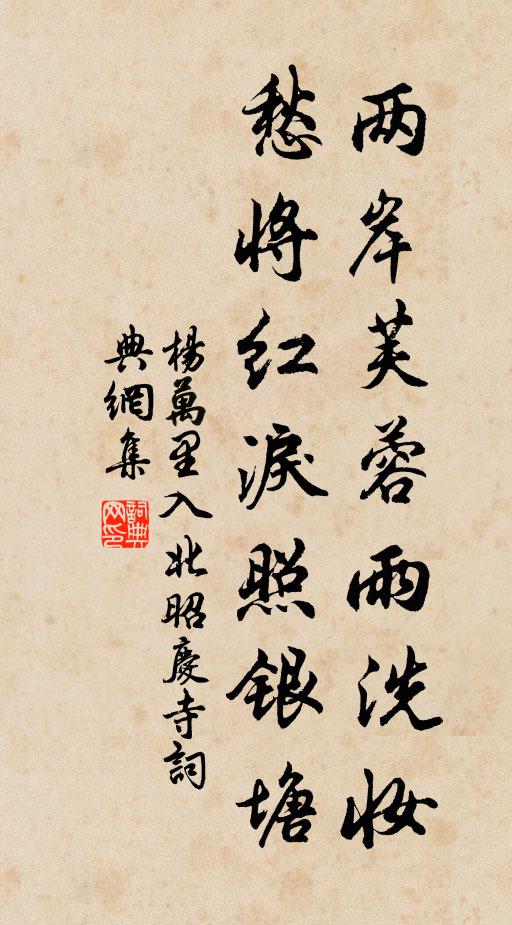 两岸芙蓉雨洗妆
愁将红淚照银塘
楊萬里入北昭慶寺詞
典網集
詞典网印